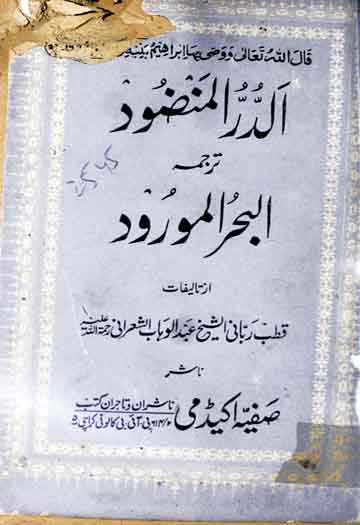 قال اللہ تعالیٰ ووصّٰی بہا ابراہیم بنیہ
الدُّرُّ المنضُود
ترجمہ
البحرُ المورُود
از تالیفات
قطب ربانی الشیخ عبدالوہاب الشعرانی رحمۃ اللہ علیہ
ناشر
صفیہ اکیڈمی ناشران و تاجران کتب
پی آئی بی کالونی کراچی ۵